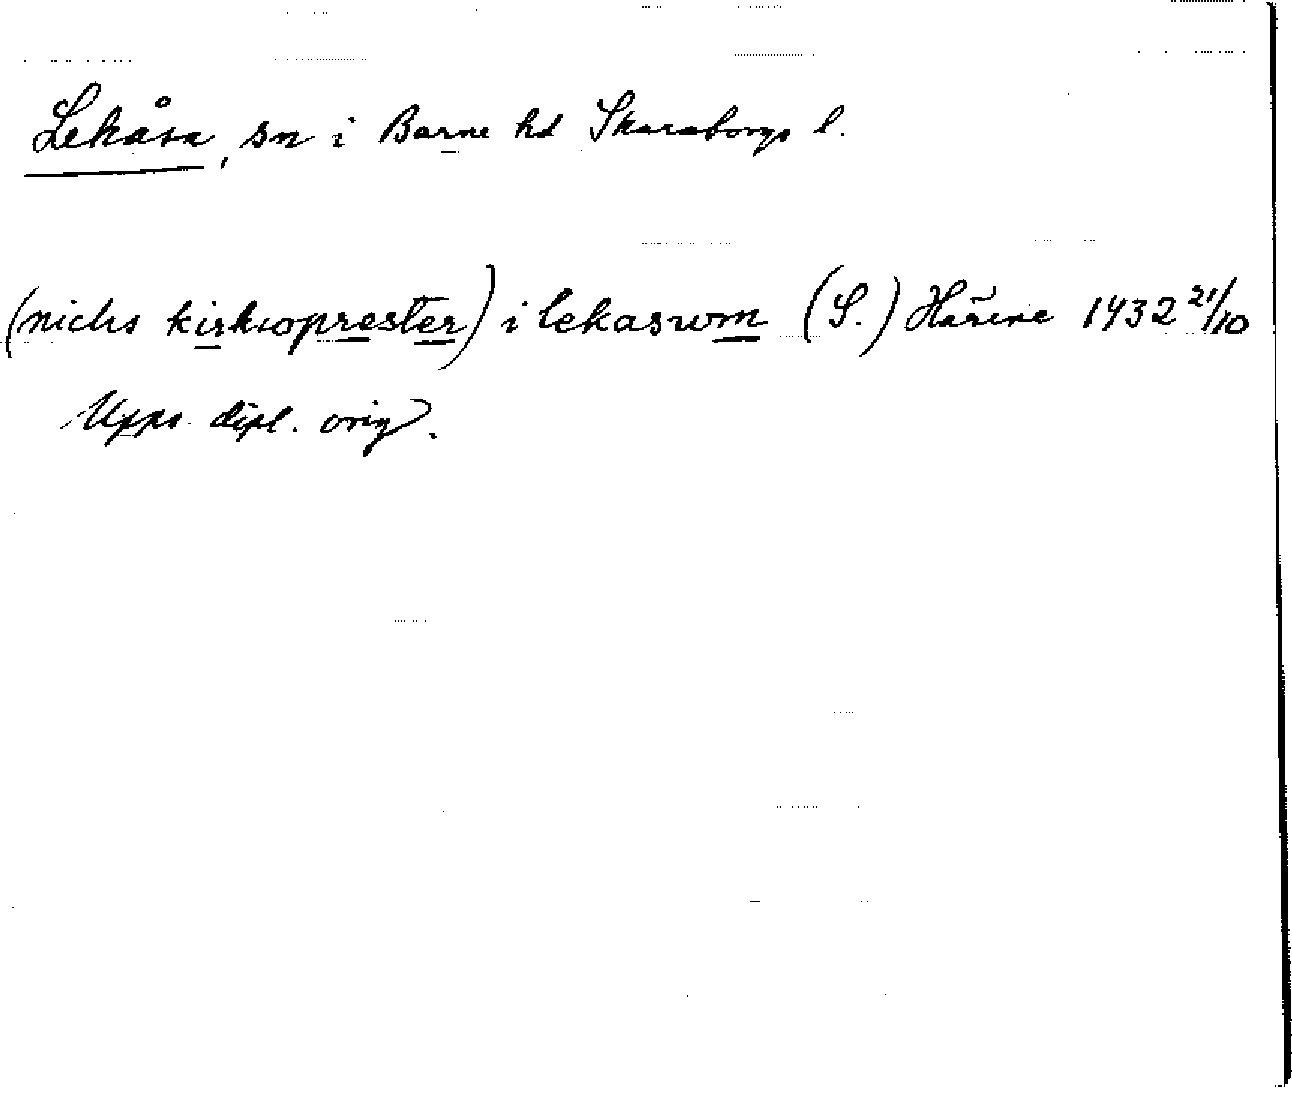 Lekåsa, sn i Barne hd Skaraborgs l.
(nichs kirkioprester) i lekaswm (S.) Härene 1432 21/10
Upps. dipl. orig.